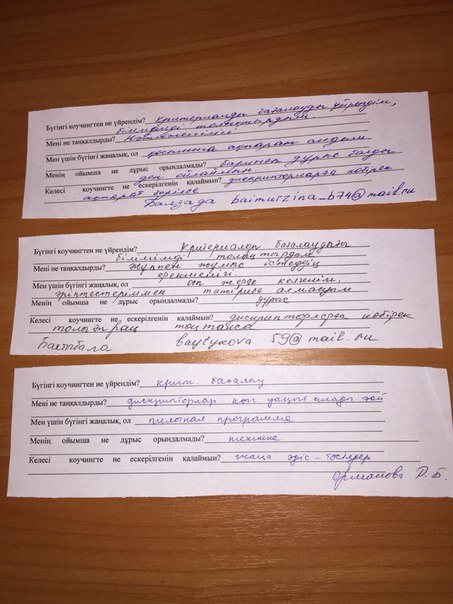 Бүгінгі коучингтен не үйрендім? Критериалды бағалауды үйрендім,
білімімді толықтырдым.
Мені не таңқалдырды?
Мен үшін бүгінгі жаңалық, ол қосымша ақпарат алдым
Менің ойымша не дұрыс орындалмады? барлығы дұрыс болды
деп ойлаймын.
Келесі коучингте не ескерілгенін қалаймын? дискрипторларға көбірек
ақпарат берілсе
Балзада baimurzina_b74@mail.ru
Бүгінгі коучингтен не үйрендім? Критериалды бағалаудағы
білімімді толықтырдым
Мені не таңқалдырды? Жұппен жұмыс істеудің
ерекшелігі.
Мен үшін бүгінгі жаңалық, ол
әріптестеріммен тәжірибе алмасуым
Менің ойымша не дұрыс орындалмады? дұрыс
Келесі коучингте не ескерілгенін қалаймын? дискрипторларға көбірек
толығырақ тоқталса
Бақтыбала baytykova 59@mail.ru
Бүгінгі коучингтен не үйрендім? крит. бағалау
Мені не таңқалдырды? дискрипторлар көп уақыт алады
Мен үшін бүгінгі жаңалық, ол пилотная программа
Менің ойымша не дұрыс орындалмады?
Келесі коучингте не ескерілгенін қалаймын? жаңа әдіс-тәсілдер
Орманова Р.Б.